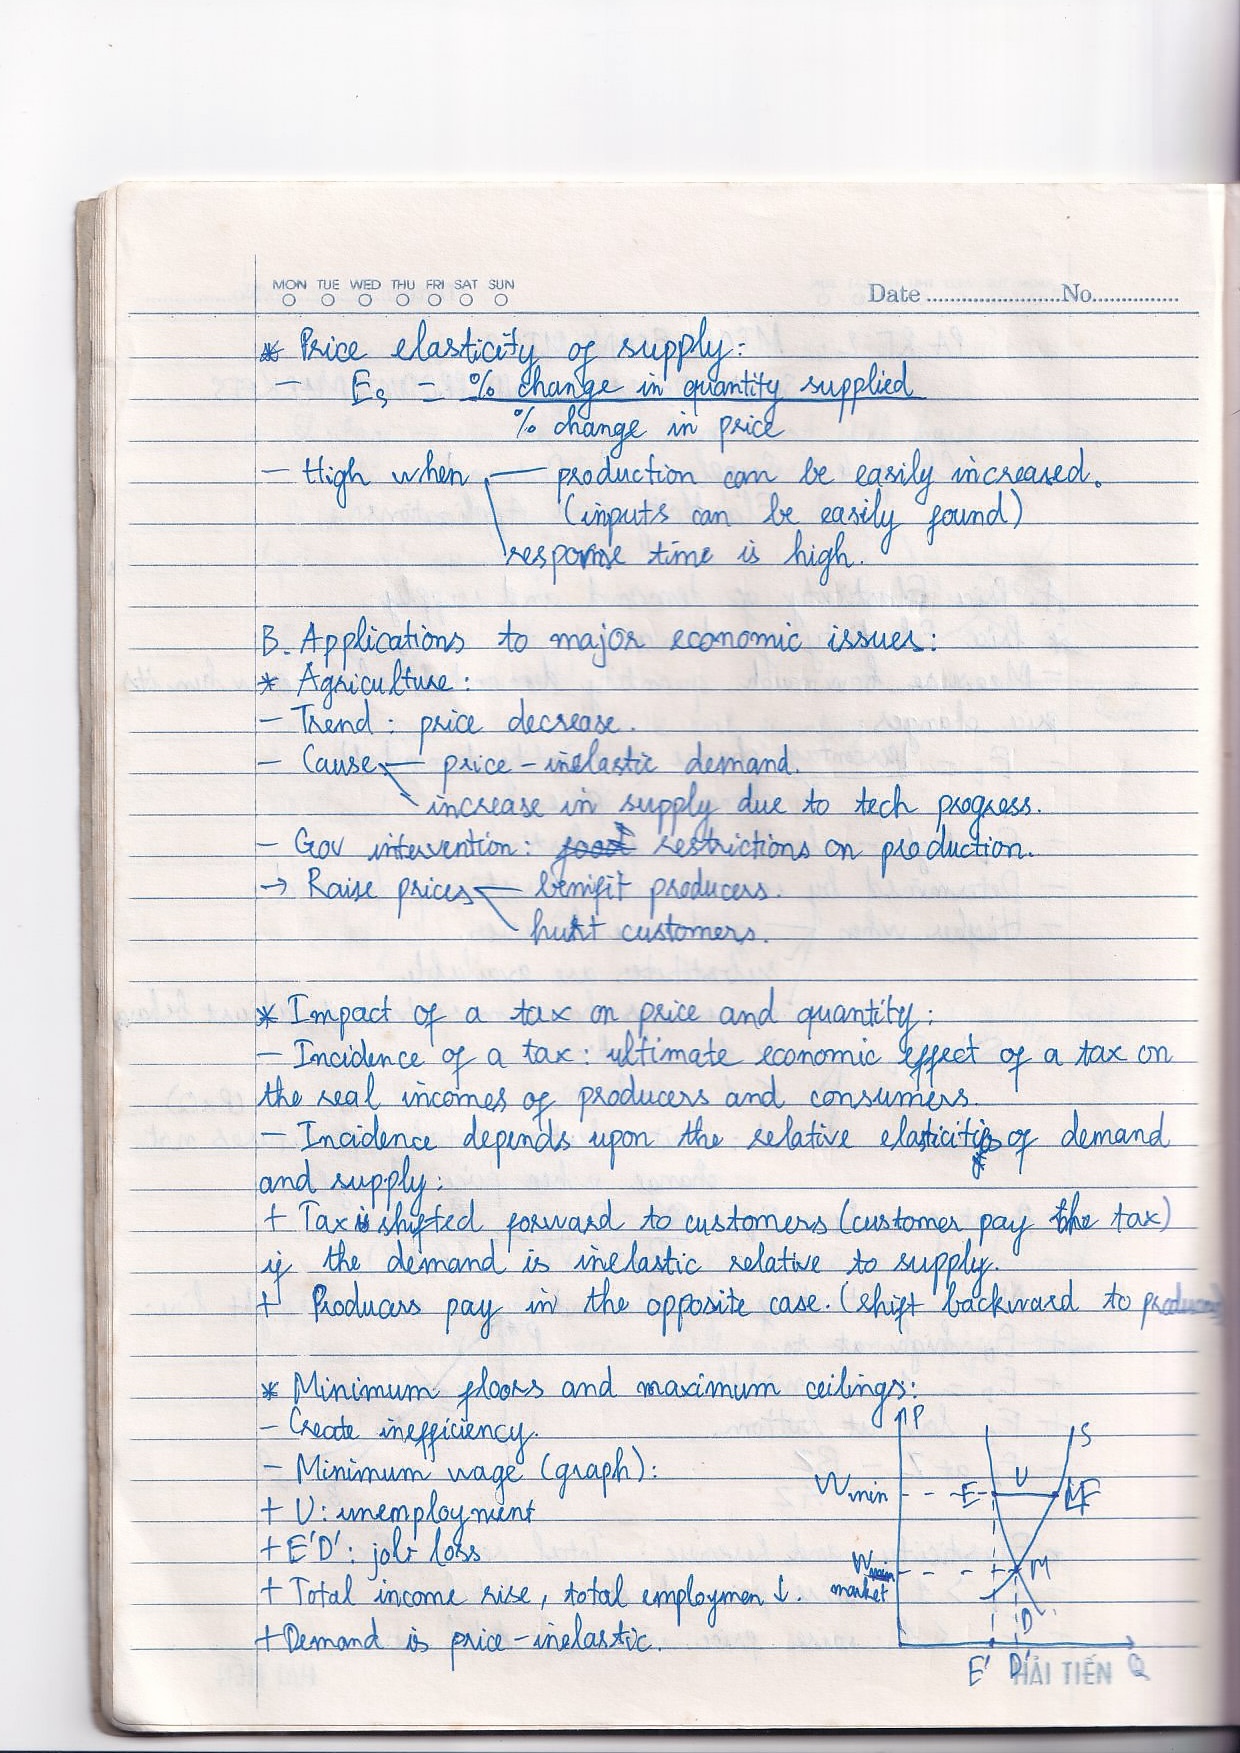 MON TUE WED THU FRI SAT SUN
Date ........................No................
* Price elasticity of supply:
- Es = % change in quantity supplied
% change in price
- High when — production can be easily increased.
(inputs can be easily found)
response time is high.
B. Applications to major economic issues:
* Agriculture:
- Trend: price decrease.
- Cause — price-inelastic demand.
increase in supply due to tech progress.
- Gov intervention: restrictions on production.
→ Raise prices — benifit producers.
hurt customers.
* Impact of a tax on price and quantity:
- Incidence of a tax: ultimate economic effect of a tax on
the real incomes of producers and consumers.
- Incidence depends upon the relative elasticities of demand
and supply:
+ Tax is shifted forward to customers (customer pay the tax)
if the demand is inelastic relative to supply.
+ Producers pay in the opposite case. (shift backward to producers)
* Minimum floors and maximum ceilings:
- Create inefficiency.
- Minimum wage (graph):
+ U: unemployment
+ E'D': job loss
+ Total income rise, total employmen ↓.
+ Demand is price-inelastic.
P
S
Wmin E U F
W market M
D
E' D' Q
HẢI TIẾN